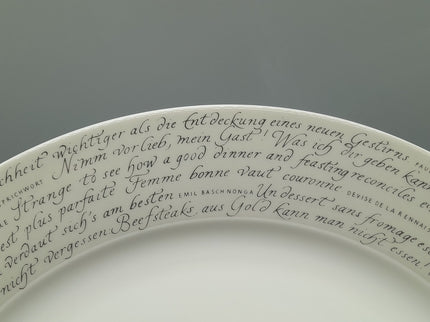 chheit wichtiger als die Entdeckung eines neuen Gestirns
SPRICHWORT Nimm vorlieb, mein Gast! Was ich dir geben kann
Strange to see how a good dinner and feasting reconciles
est plus parfaite Femme bonne vaut couronne DEVISE DE LA RENNAIS
verdaut sich's am besten EMIL BASCHNONGA Un dessert sans fromage es
nicht vergessen: Beefsteaks aus Gold kann man nicht essen!